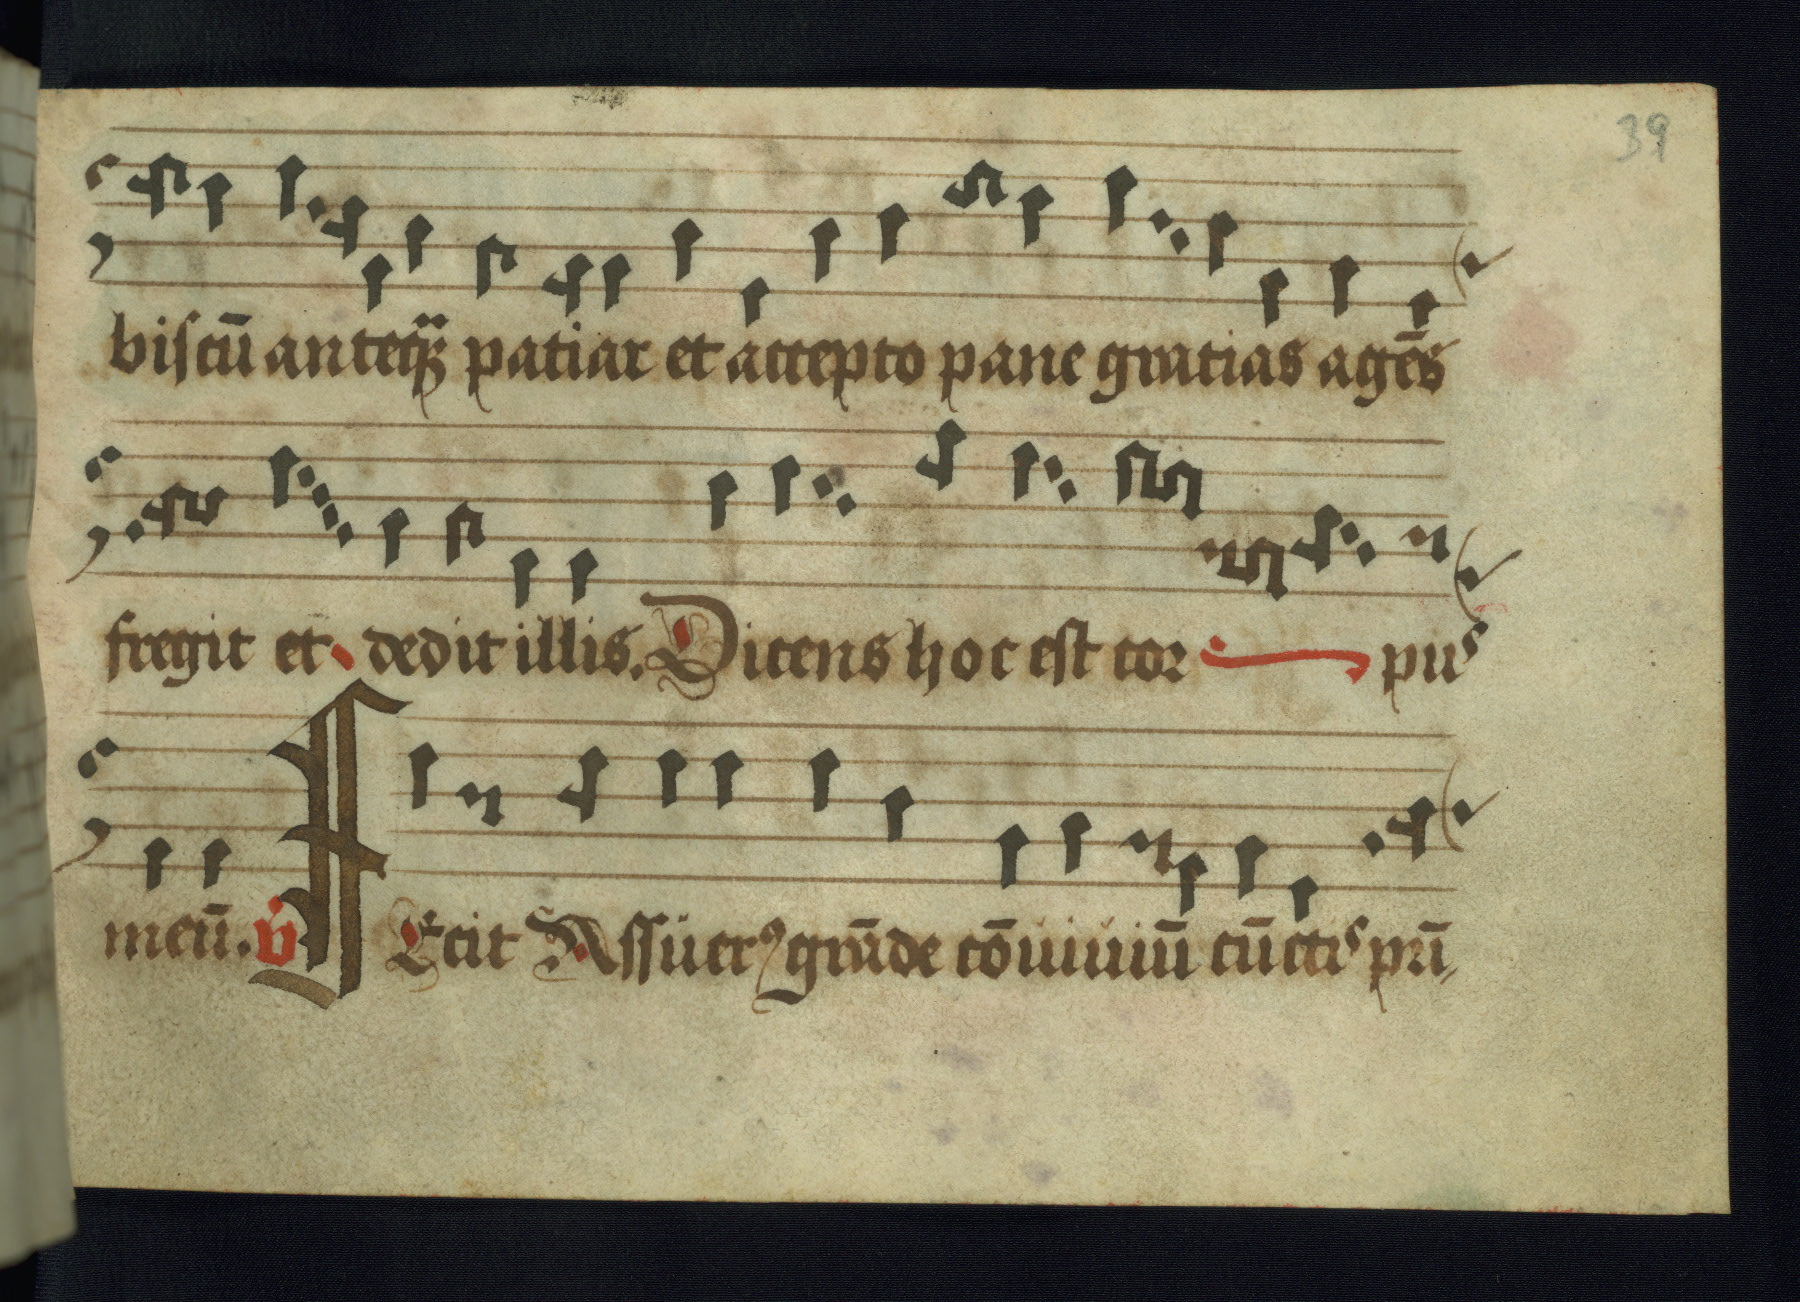 39
biſcū anteq̈ꝫ patiar et accepto pane gratias agēs
fregit et dedit illis. Dicens hoc eſt cor pus
meū. v̇ FEcit Aſſuerꝰ grāde cōuiuiū cūctis prī